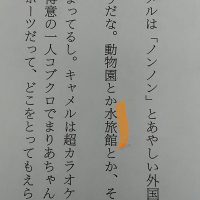 メルは「ノンノン」とあやしい外国
だな。動物園とか水旅館とか、そ
まってるし。キャメルは超カラオケ
得意の一人コブクロでまりあちゃん
ポーツだって、どこをとってもえら